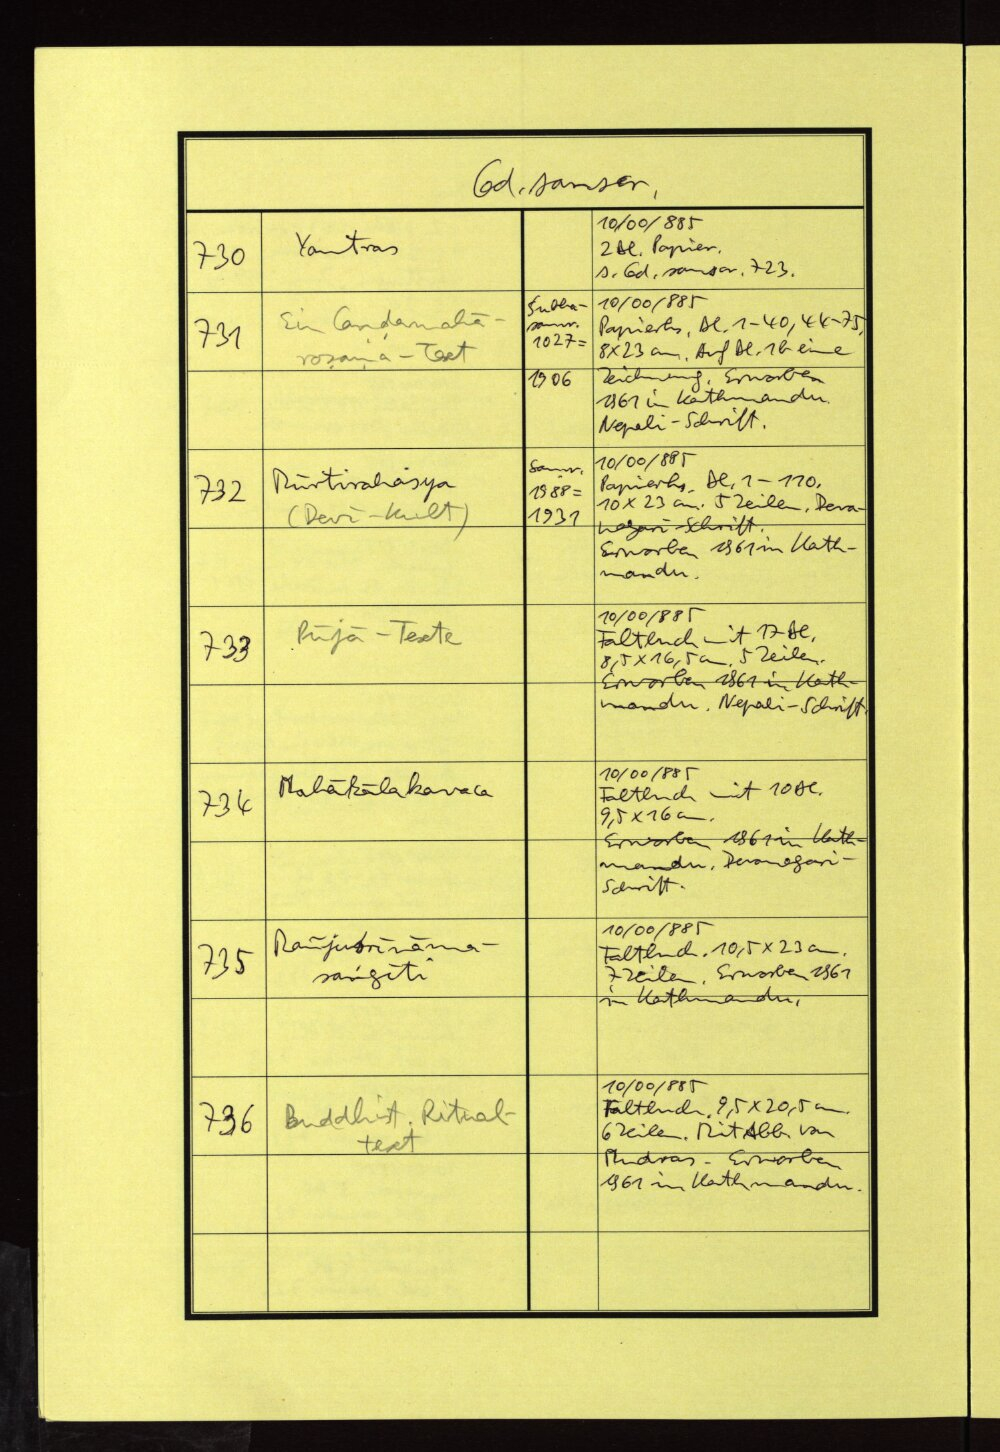 Cod. sanscr.
730
Yantras
10/00/885
2 Bl. Papier.
s. Cod. sanscr. 723.
731
Ein Caṇḍamahā-
roṣaṇa-Text
samv.
1027=
1906
10/00/885
Papierhs. Bl. 1-40, 44-75,
8×23 cm. Auf Bl. 1b eine
Zeichnung. Erworben
1961 in Kathmandu.
Nepali-Schrift.
732
Mūrtirahasya
(Devī-Kult)
Samv.
1988=
1931
10/00/885
Papierhs. Bl. 1-110.
10×23 cm. 5 Zeilen. Deva-
nagari-Schrift.
Erworben 1961 in Kath-
mandu.
733
Pūjā-Texte
10/00/885
Faltbuch mit 17 Bl.
8,5×16,5 cm. 5 Zeilen.
Erworben 1961 in Kath-
mandu. Nepali-Schrift.
734
Mahākālakavaca
10/00/885
Faltbuch mit 10 Bl.
9,5×16 cm.
Erworben 1961 in Kath-
mandu. Devanagari-
Schrift.
735
Mañjuśrīnāma-
saṅgīti
10/00/885
Faltbuch. 10,5×23 cm.
7 Zeilen. Erworben 1961
in Kathmandu.
736
Buddhist. Ritual-
text
10/00/885
Faltbuch. 9,5×20,5 cm.
6 Zeilen. Mit Abb. von
Mudras. Erworben
1961 in Kathmandu.